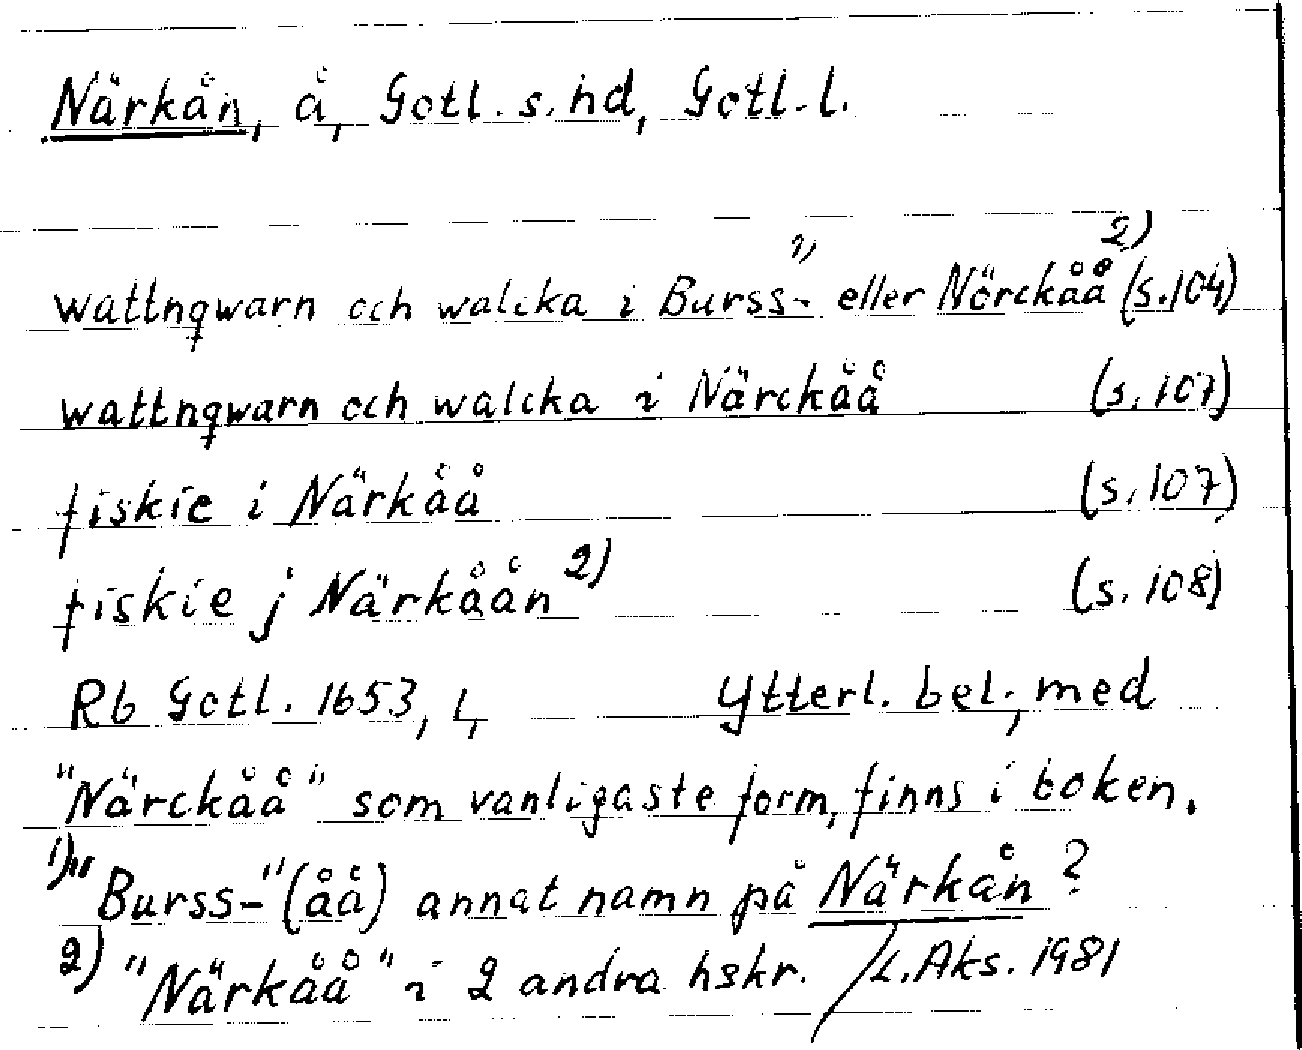 Närkån, å, Gotl. s. hd, Gotl. l.
wattnqwarn och walcka i Burss-¹⁾ eller Nörckåå²⁾ (s. 104)
wattnqwarn och walcka i Närckåå (s. 107)
fiskie i Närkåå (s. 107)
fiskie j Närkåån²⁾ (s. 108)
Rb Gotl. 1653, L, Ytterl. bel., med
"Närckåå" som vanligaste form, finns i boken.
1) "Burss-"(åå) annat namn på Närkån?
2) "Närkåå" i 2 andra hskr. /L. Aks. 1981